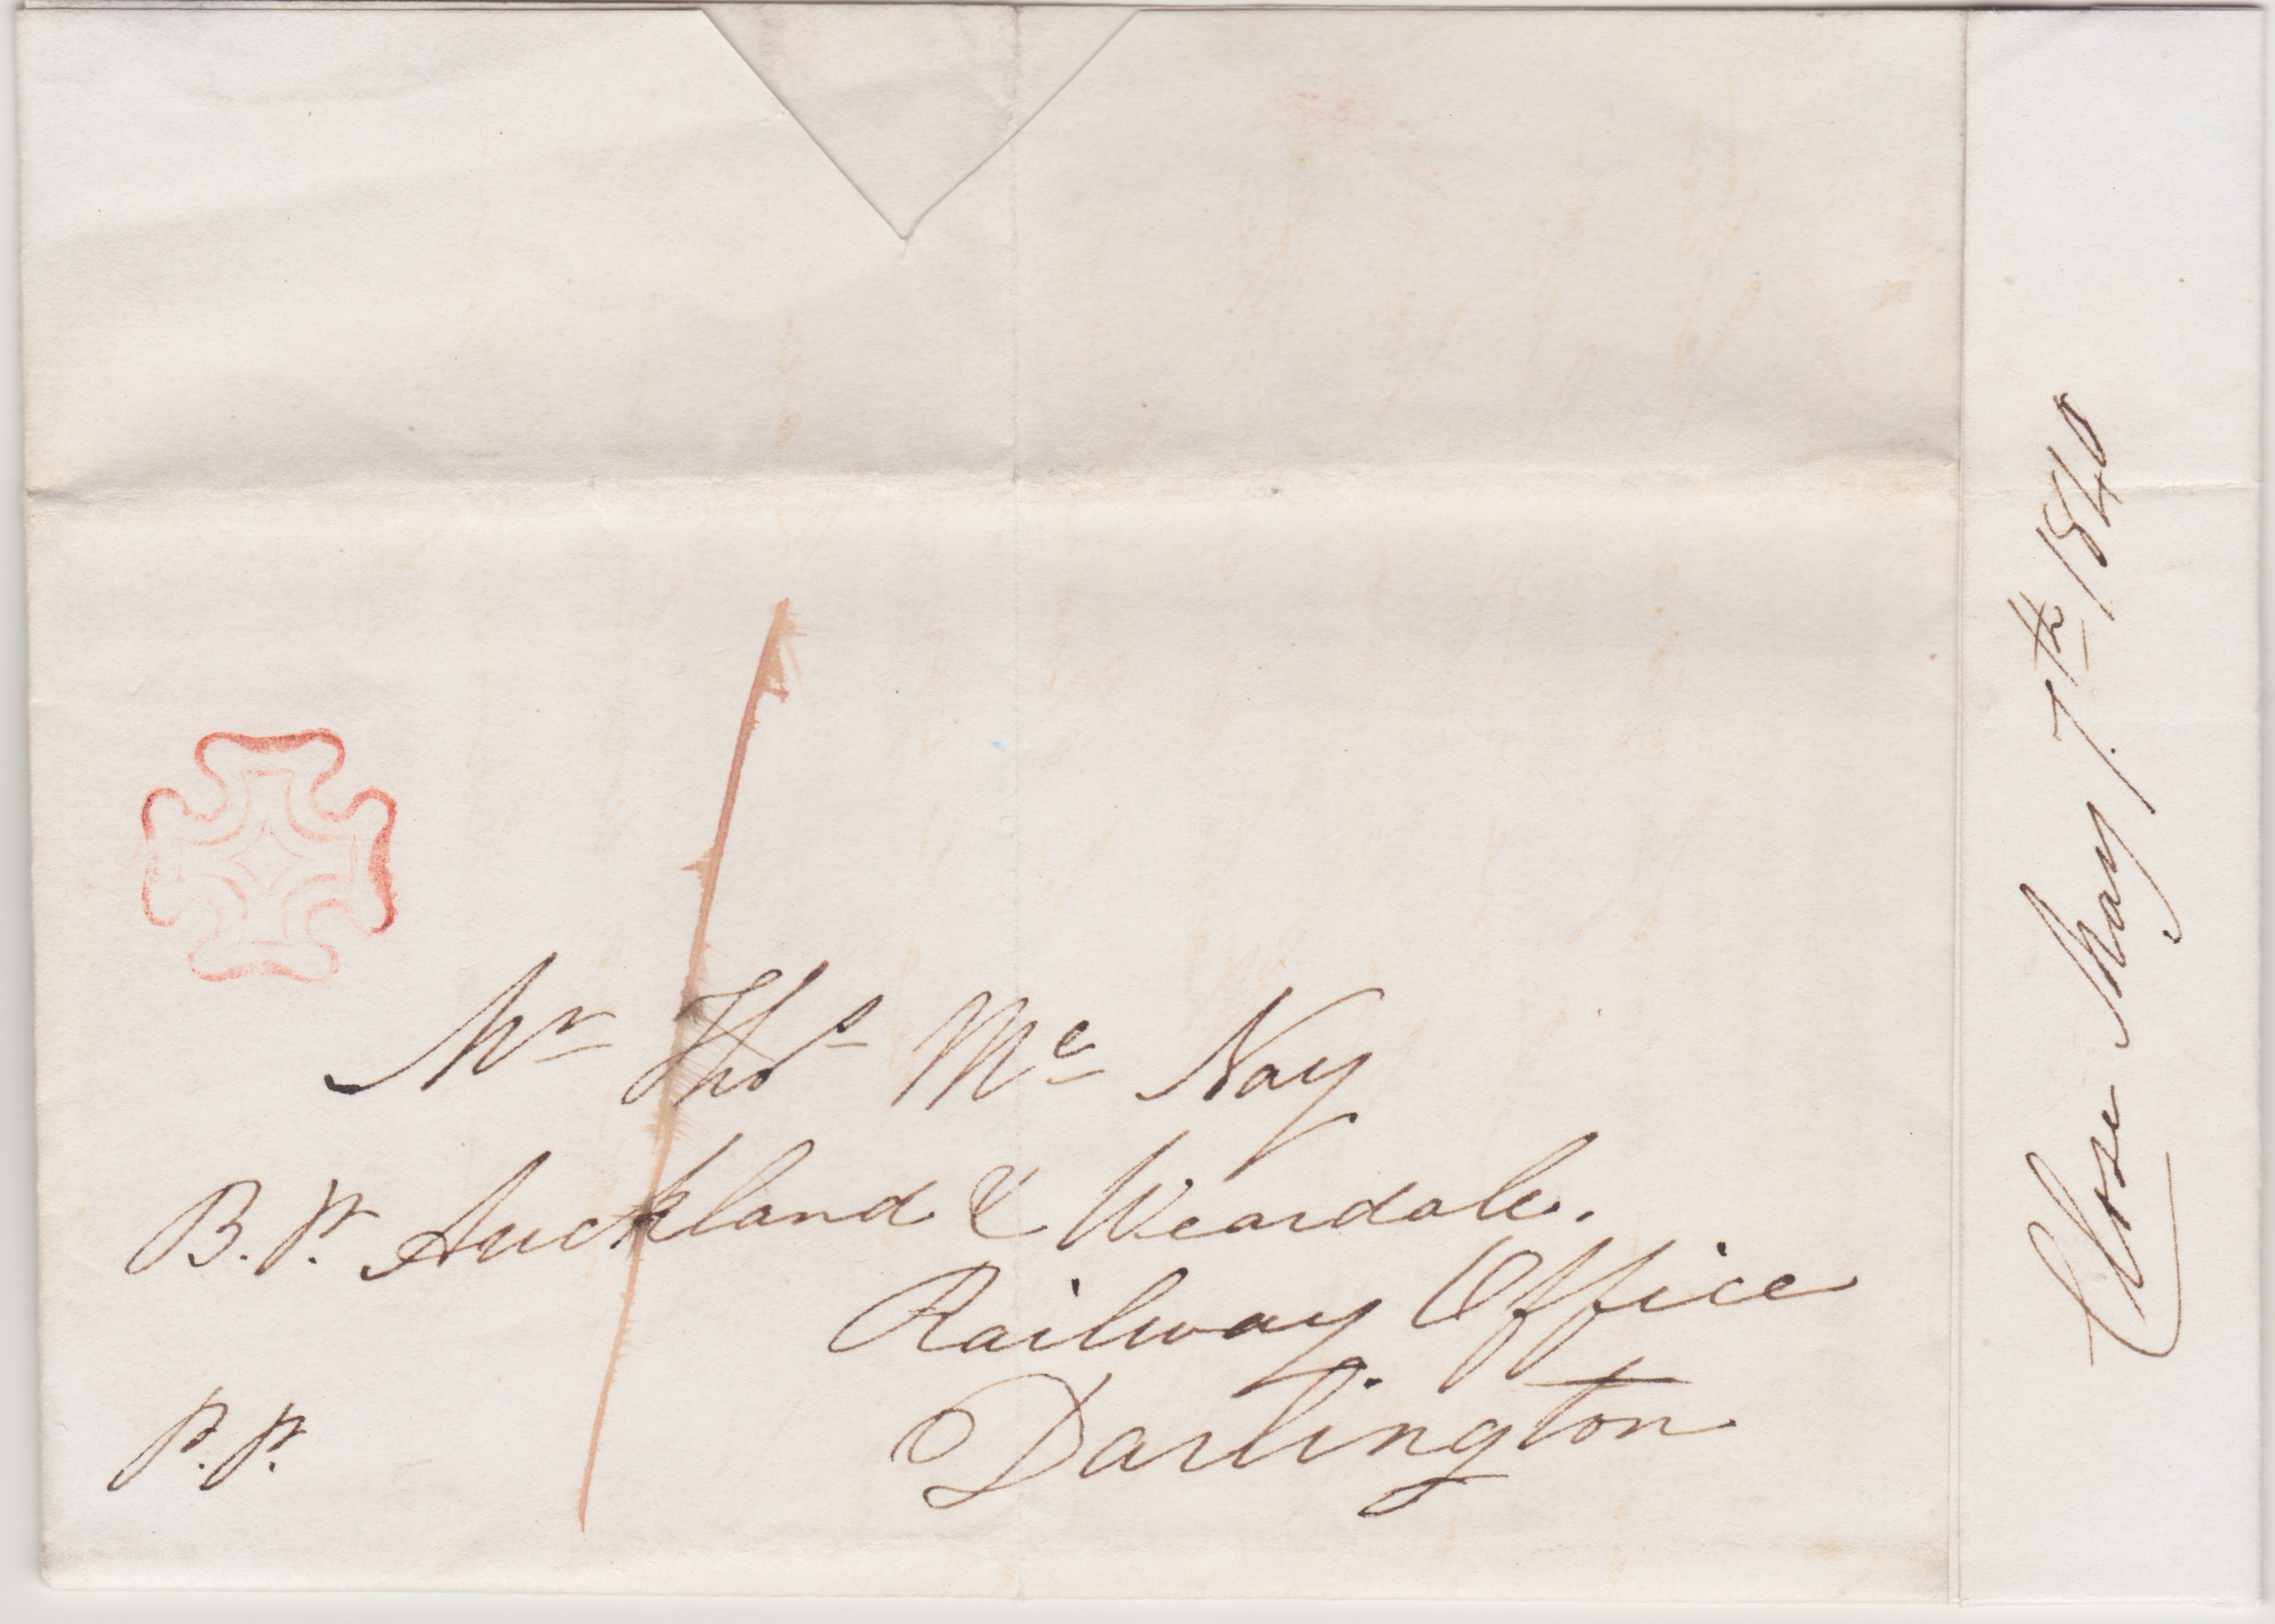 Mr Thos Mc Nay
B.P. Auckland & Weardale.
Railway Office
P.P. Darlington
Close May 7th 1840